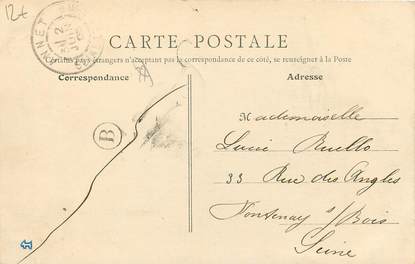 12t
CARTE POSTALE
Certains pays étrangers n'acceptant pas la correspondance de ce côté, se renseigner à la Poste
Correspondance
Adresse
B
Mademoiselle
Lucie Ruello
33 Rue des Angles
Fontenay s/ Bois
Seine